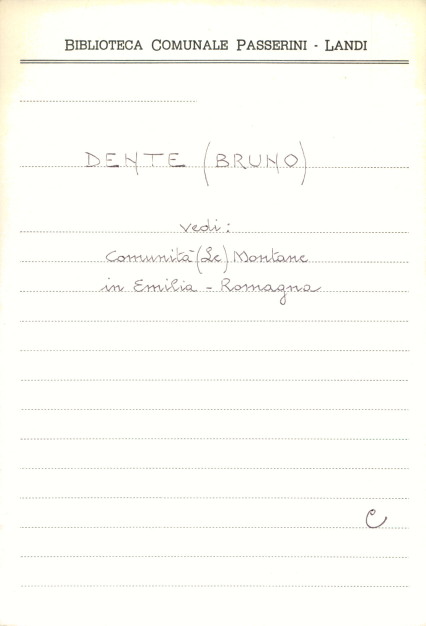 BIBLIOTECA COMUNALE PASSERINI - LANDI
DENTE (BRUNO)
vedi:
Comunità (Le) Montane
in Emilia - Romagna
C